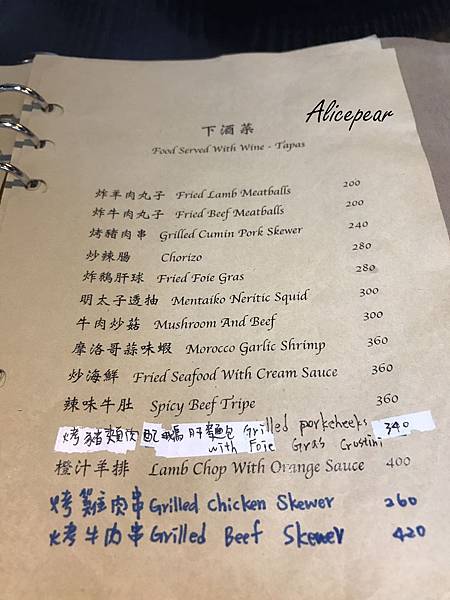 Alicepear
下酒菜
Food Served With Wine - Tapas
炸羊肉丸子 Fried Lamb Meatballs 200
炸牛肉丸子 Fried Beef Meatballs 200
烤豬肉串 Grilled Cumin Pork Skewer 240
炒辣腸 Chorizo 280
炸鵝肝球 Fried Foie Gras 280
明太子透抽 Mentaiko Neritic Squid 300
牛肉炒菇 Mushroom And Beef 300
摩洛哥蒜味蝦 Morocco Garlic Shrimp 360
炒海鮮 Fried Seafood With Cream Sauce 360
辣味牛肚 Spicy Beef Tripe 360
烤豬頰肉配鴨肝麵包 Grilled porkcheeks 340
with Foie Gras Crostini
橙汁羊排 Lamb Chop With Orange Sauce 400
烤雞肉串 Grilled Chicken Skewer 260
烤牛肉串 Grilled Beef Skewer 420